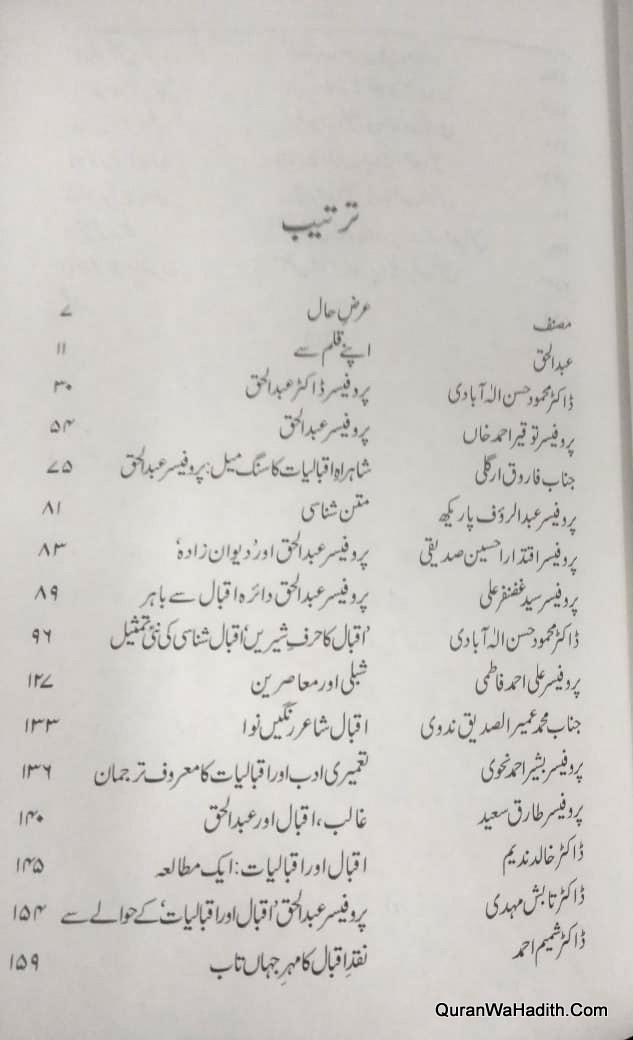 ترتیب
مصنف عرض حال ۷
عبدالحق اپنے قلم سے ۱۱
ڈاکٹر محمود حسن الٰہ آبادی پروفیسر ڈاکٹر عبدالحق ۳۰
پروفیسر توقیر احمد خاں پروفیسر عبدالحق ۵۴
جناب فاروق ارگلی شاہراہِ اقبالیات کا سنگ میل: پروفیسر عبدالحق ۷۵
پروفیسر عبدالرؤف پاریکھ متن شناسی ۸۱
پروفیسر اقتدار حسین صدیقی پروفیسر عبدالحق اور ’دیوان زادہ‘ ۸۳
پروفیسر سید غضنفر علی پروفیسر عبدالحق دائرہ اقبال سے باہر ۸۹
ڈاکٹر محمود حسن الٰہ آبادی ’اقبال کا حرفِ شیریں‘ اقبال شناسی کی نئی تمثیل ۹۶
پروفیسر علی احمد فاطمی شبلی اور معاصرین ۱۲۷
جناب محمد عمیر الصدیق ندوی اقبال شاعر رنگیں نوا ۱۳۳
پروفیسر بشیر احمد نحوی تعمیری ادب اور اقبالیات کا معروف ترجمان ۱۳۶
پروفیسر طارق سعید غالب، اقبال اور عبدالحق ۱۴۰
ڈاکٹر خالد ندیم اقبال اور اقبالیات: ایک مطالعہ ۱۴۵
ڈاکٹر تابش مہدی پروفیسر عبدالحق ’اقبال اور اقبالیات‘ کے حوالے سے ۱۵۴
ڈاکٹر شمیم احمد نقدِ اقبال کا مہرِ جہاں تاب ۱۵۹
QuranWaHadith.Com